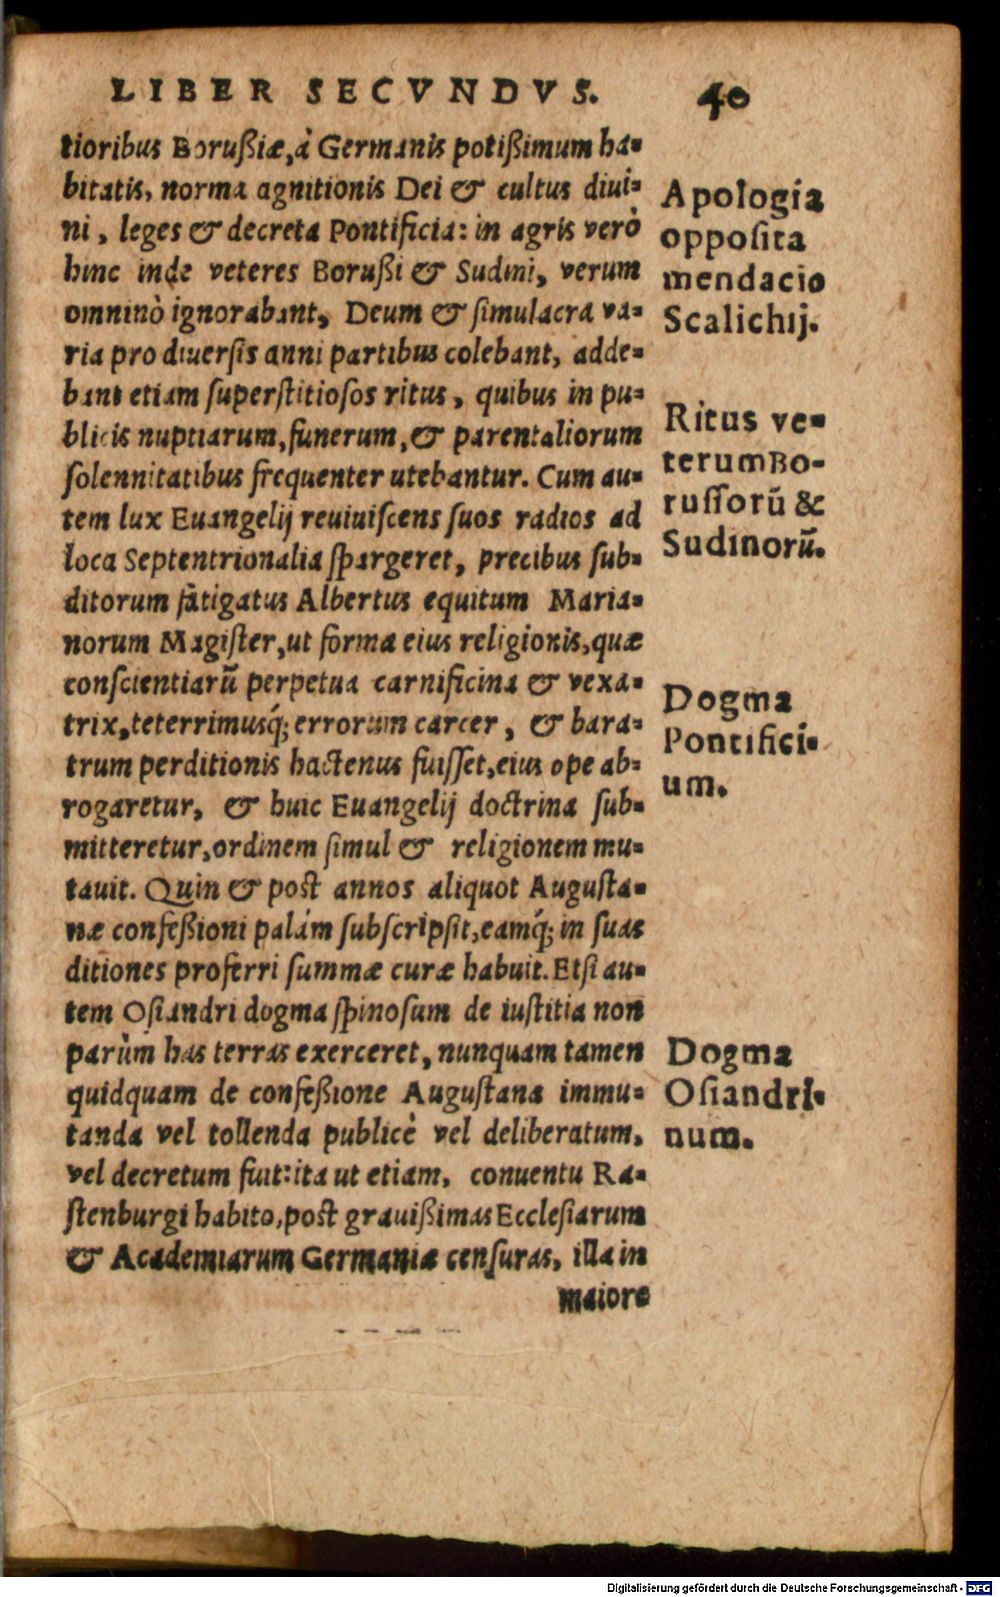 LIBER SECVNDVS. 40
tioribus Borußiæ, à Germanis potißimum ha-
bitatis, norma agnitionis Dei & cultus diui-
ni, leges & decreta Pontificia: in agris verò
hinc inde veteres Borußi & Sudini, verum
omninò ignorabant, Deum & simulacra va-
ria pro diuersis anni partibus colebant, adde-
bant etiam superstitiosos ritus, quibus in pu-
blicis nuptiarum, funerum, & parentaliorum
solennitatibus frequenter utebantur. Cum au-
tem lux Euangelij reuiuiscens suos radios ad
loca Septentrionalia spargeret, precibus sub-
ditorum fatigatus Albertus equitum Maria-
norum Magister, ut forma eius religionis, quæ
conscientiarũ perpetua carnificina & vexa-
trix, teterrimusq́; errorum carcer, & bara-
trum perditionis hactenus fuisset, eius ope ab-
rogaretur, & huic Euangelij doctrina sub-
mitteretur, ordinem simul & religionem mu-
tauit. Quin & post annos aliquot Augusta-
næ confeßioni palám subscripsit, eamq́; in suas
ditiones proferri summæ curæ habuit. Etsi au-
tem Osiandri dogma spinosum de iustitia non
parùm has terras exerceret, nunquam tamen
quidquam de confeßione Augustana immu-
tanda vel tollenda publicè vel deliberatum,
vel decretum fuit: ita ut etiam, conuentu Ra-
stenburgi habito, post grauißimas Ecclesiarum
& Academiarum Germaniæ censuras, illa in
maiore
Apologia
opposita
mendacio
Scalichij.
Ritus ve-
terum Bo-
russorũ &
Sudinorũ.
Dogma
Pontifici-
um.
Dogma
Osiandri-
num.
Digitalisierung gefördert durch die Deutsche Forschungsgemeinschaft - DFG